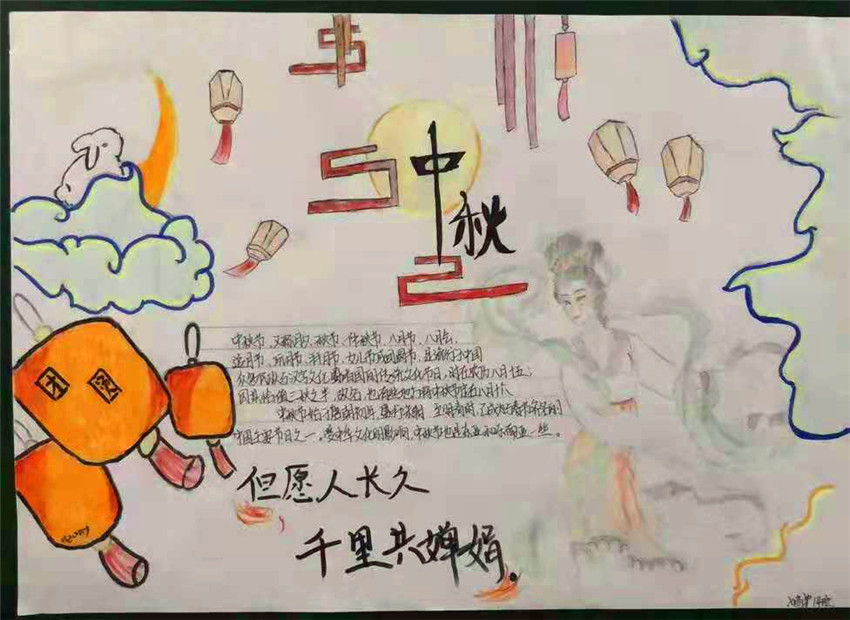 中秋
中秋节，又称月夕、秋节、仲秋节、八月节、八月会、
追月节、玩月节、拜月节、女儿节或团圆节，是流行于中国
众多民族与汉字文化圈诸国的传统文化节日，时在农历八月十五；
因其恰值三秋之半，故名，也有些地方将中秋节定在八月十六
中秋节始于唐朝初年，盛行于宋朝，至明清时，已成为与春节齐名的
中国主要节日之一。受中华文化的影响，中秋节也是东亚和东南亚一些
团圆
但愿人长久
千里共婵娟。